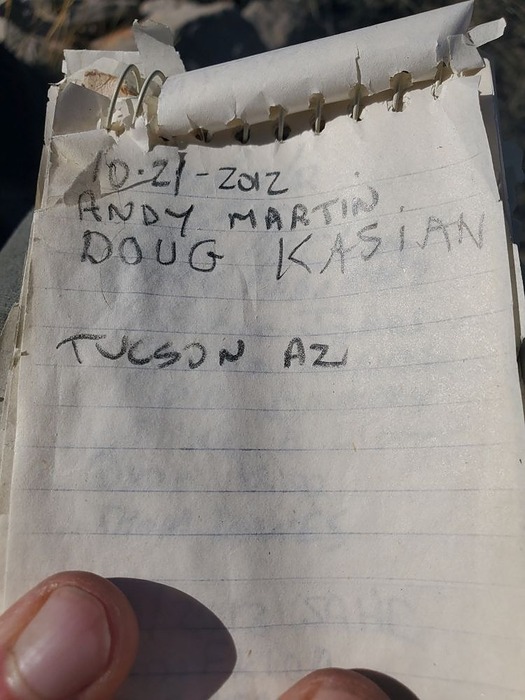 10·21-2012
ANDY MARTIN
DOUG KASiAN
TUCSON AZ